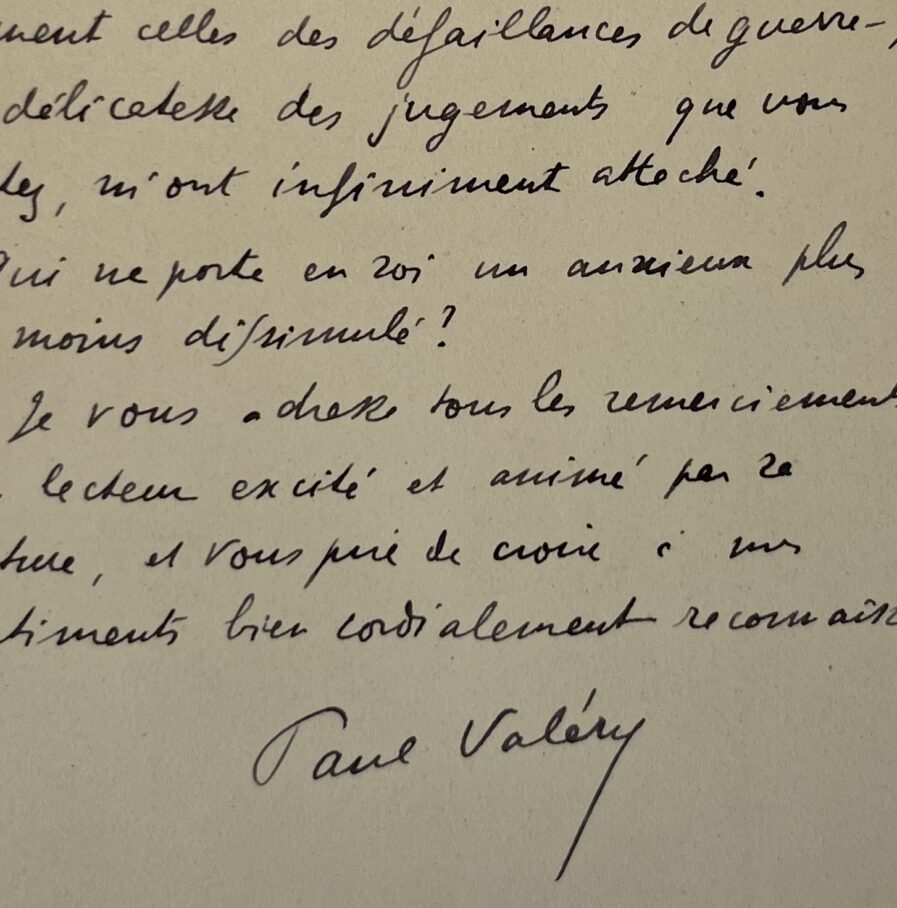 ment celles des défaillances de guerre-,
délicatesse des jugements que vous
tez, m'ont infiniment attaché.
Qui ne porte en soi un anxieux plus
moins dissimulé?
Je vous adresse tous les remerciements
lecteur excité et animé par sa
ture, et vous prie de croire à mes
timents bien cordialement reconnaiss
Paul Valéry